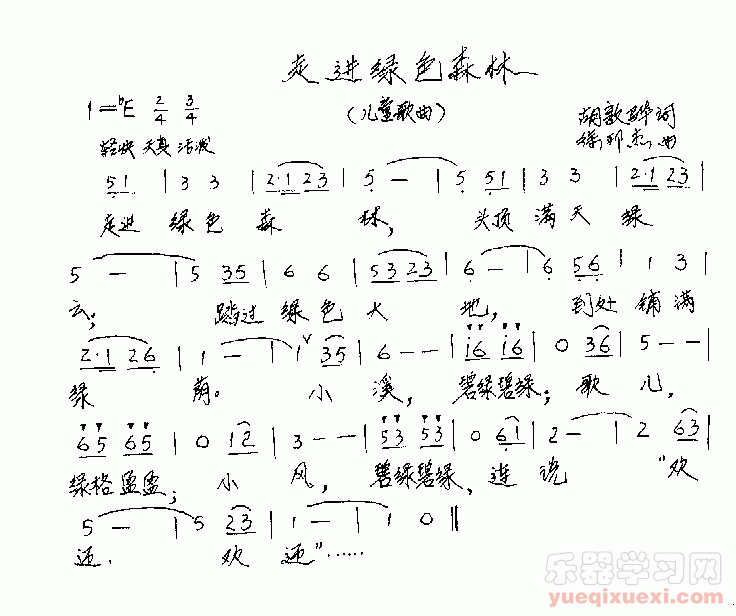 走进绿色森林
1=♭E 2/4 3/4
(儿童歌曲)
胡敦骅词
徐邦杰曲
轻快 天真 活泼
5 1 | 3 3 | 2·1 2 3 | 5 — | 5 5 1 | 3 3 | 2·1 2 3 |
走进 绿色 森 林, 头顶 满天 绿
5 — | 5 3 5 | 6 6 | 5 3 2 3 | 6 — | 6 5 6 | 1 3 |
云; 踏过 绿色 大 地, 到处 铺满
2·1 2 6 | 1 — | 1 ∨ 3 5 | 6 — — | i 6 i 6 | 0 3 6 | 5 — — |
绿 荫。 小 溪, 碧绿碧绿; 歌 儿,
6 5 6 5 | 0 1 2 | 3 — — | 5 3 5 3 | 0 6 1 | 2 — | 2 6 3 |
绿格盈盈; 小 风, 碧绿碧绿, 连说 "欢
5 — | 5 2 3 | 1 — | 1 0 ‖
迎. 欢 迎"……
乐器学习网
yueqixuexi.com